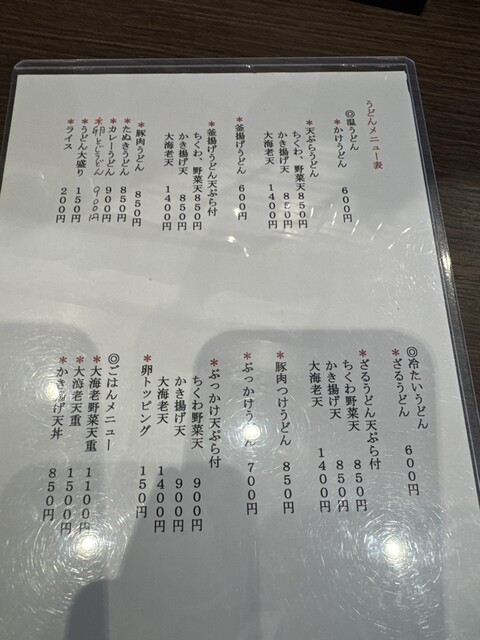 うどんメニュー表
◎温うどん
＊かけうどん　６００円
＊天ぷらうどん
ちくわ、野菜天８５０円
かき揚げ天　８５０円
大海老天　１４００円
＊釜揚げうどん　６００円
＊釜揚げうどん天ぷら付
ちくわ、野菜天８５０円
かき揚げ天　８５０円
大海老天　１４００円
＊豚肉うどん　８５０円
＊たぬきうどん　８５０円
＊カレーうどん　９００円
＊卵とじうどん　９００円
＊うどん大盛り　１５０円
＊ライス　２００円
◎冷たいうどん
＊ざるうどん　６００円
＊ざるうどん天ぷら付
ちくわ野菜天　８５０円
かき揚げ天　８５０円
大海老天　１４００円
＊豚肉つけうどん　８５０円
＊ぶっかけうどん　７００円
＊ぶっかけ天ぷら付
ちくわ野菜天　９００円
かき揚げ天　９００円
大海老天　１４００円
＊卵トッピング　１５０円
◎ごはんメニュー
＊大海老野菜天重　１１００円
＊大海老天重　１５００円
＊かき揚げ天丼　８５０円